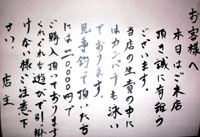 お客様へ
本日はご来店
頂き誠に有難う
ございます。
当店の生簀の中に
はカンパチも泳い
でおります。
見事釣って頂いた方
には二〇〇〇〇円で
ご購入頂いております
くれぐれも遊びで引掛
けない様ご注意下
さい。
店主